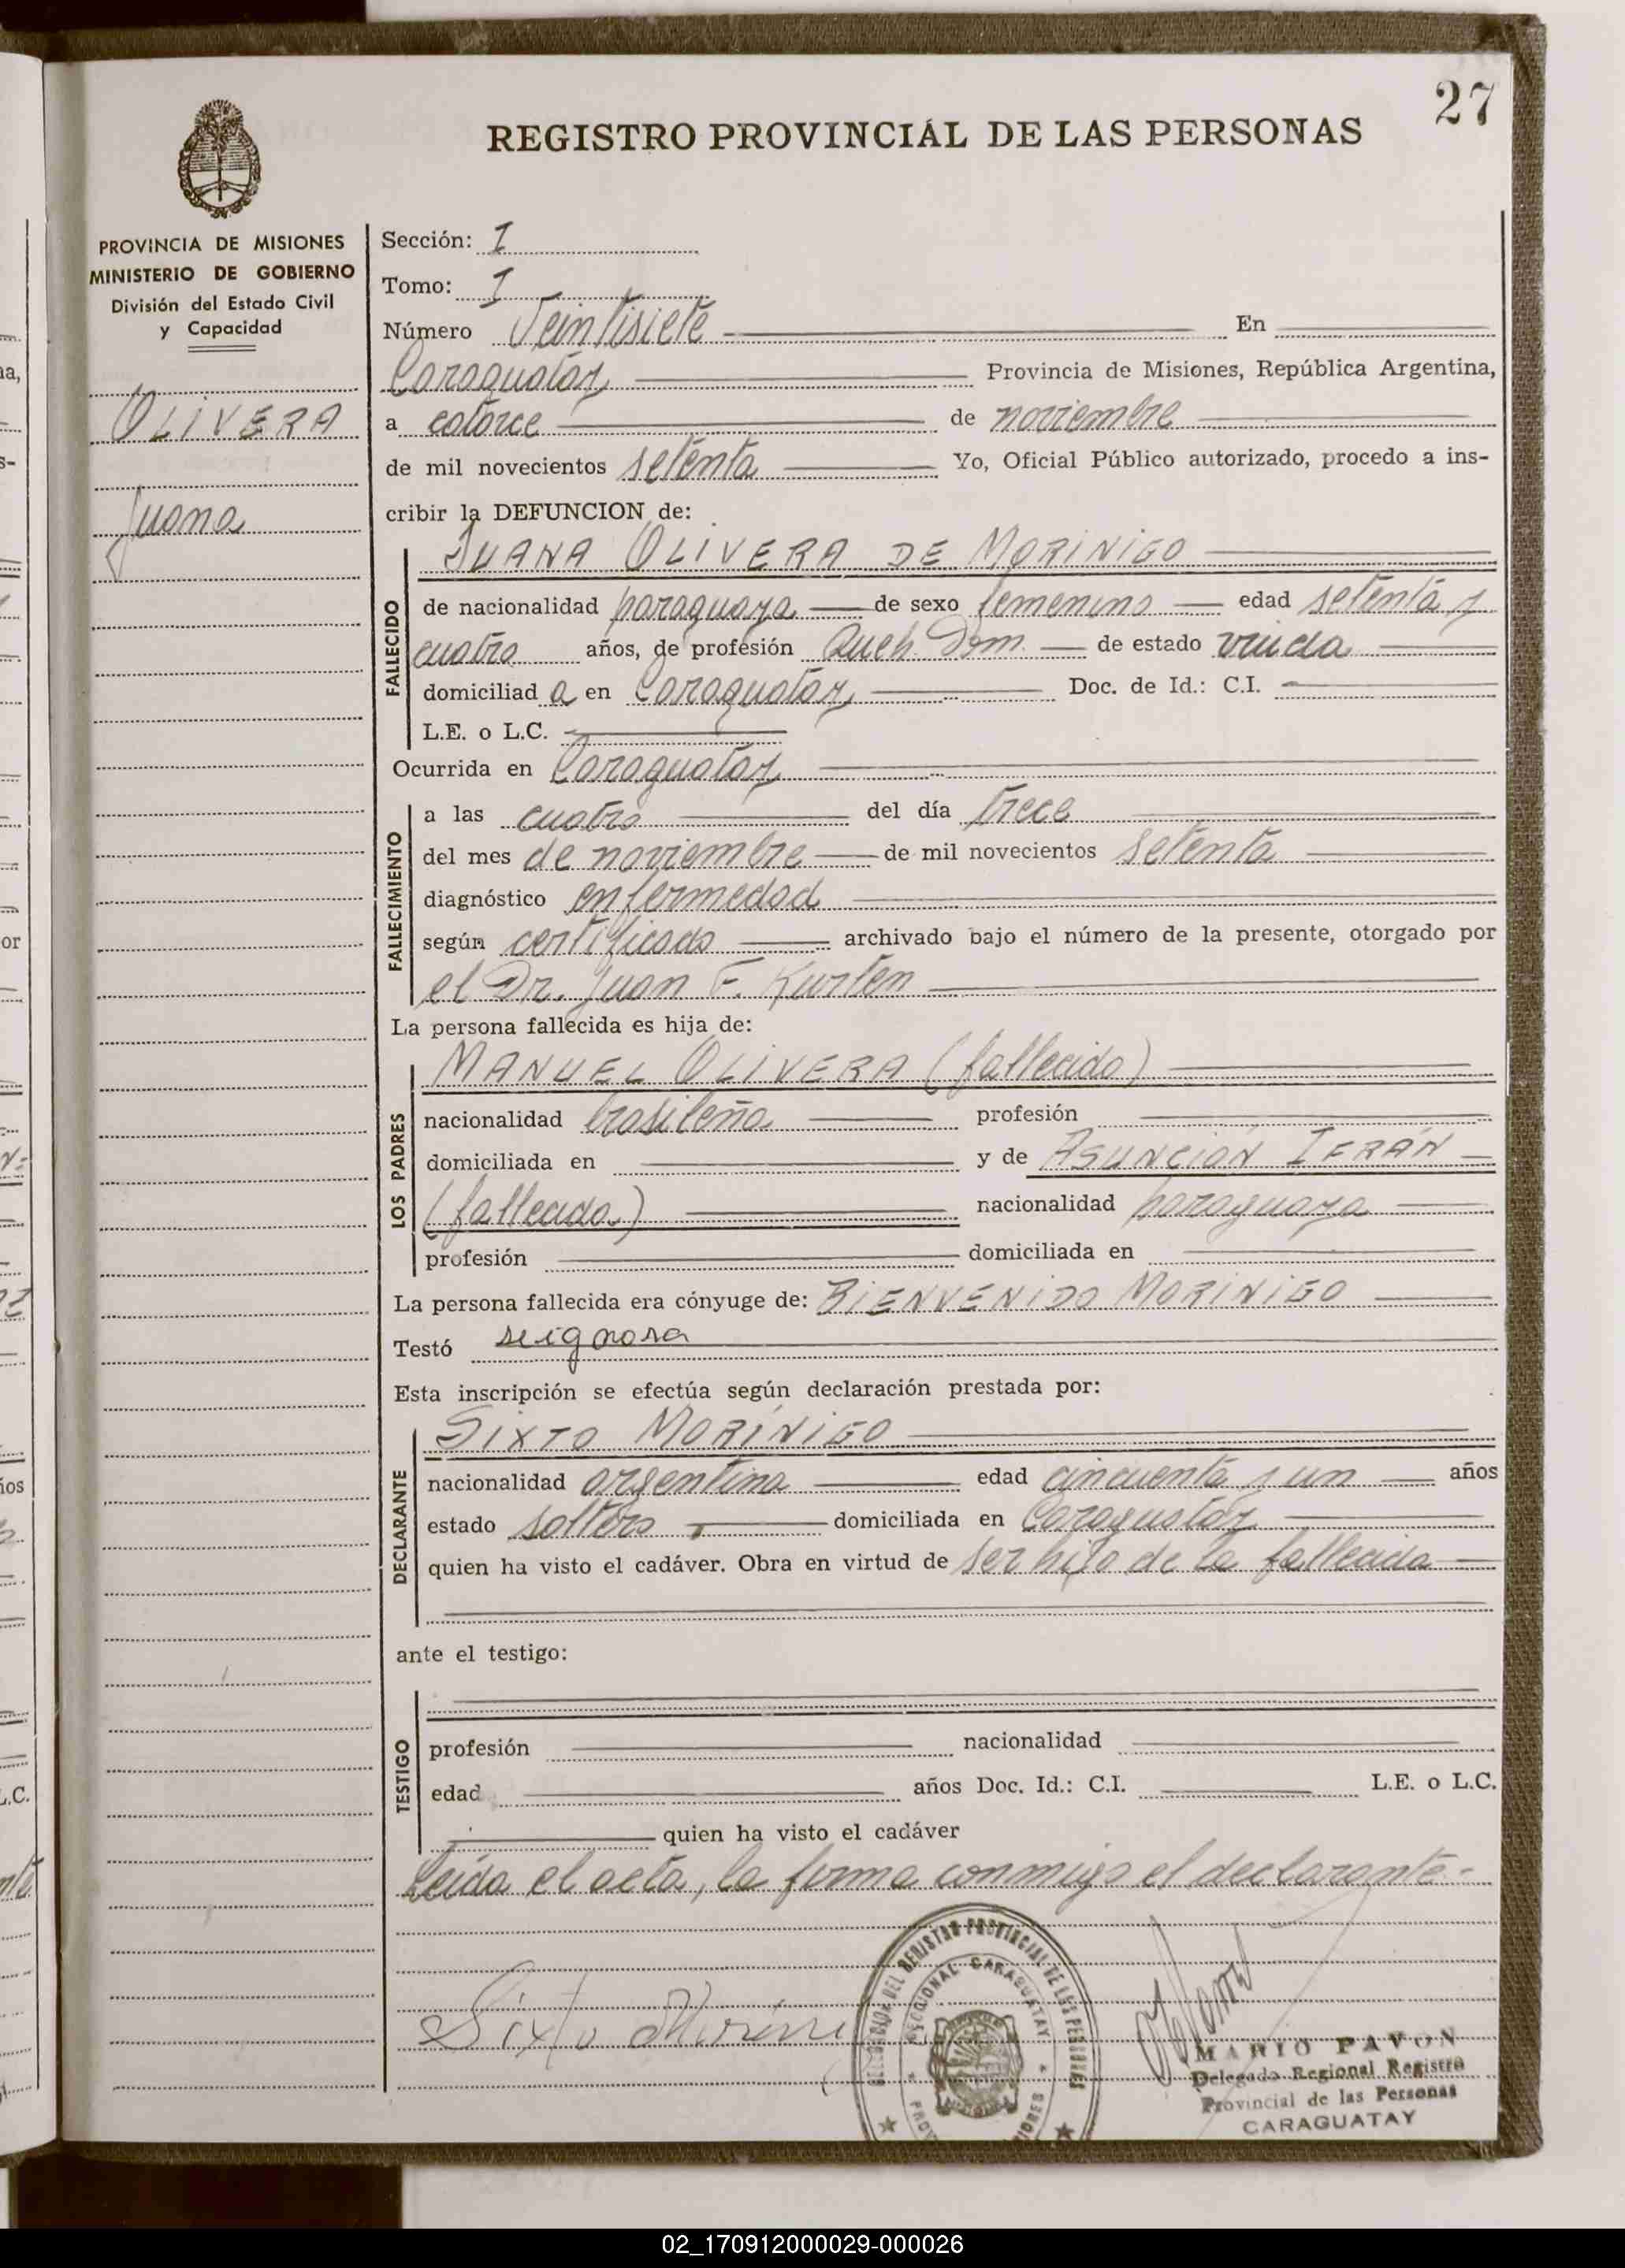 27
REGISTRO PROVINCIAL DE LAS PERSONAS
PROVINCIA DE MISIONES
MINISTERIO DE GOBIERNO
División del Estado Civil
y Capacidad
OLIVERA
Juana
Sección: I
Tomo: I
Número Veintisiete En
Caraguatay Provincia de Misiones, República Argentina,
a catorce de noviembre
de mil novecientos setenta Yo, Oficial Público autorizado, procedo a ins-
cribir la DEFUNCION de:
JUANA OLIVERA DE MORINIGO
FALLECIDO
de nacionalidad paraguaya de sexo femenino edad setenta y
cuatro años, de profesión Queh. Dom. de estado viuda
domiciliad a en Caraguatay Doc. de Id.: C.I.
L.E. o L.C.
Ocurrida en Caraguatay
FALLECIMIENTO
a las cuatro del día trece
del mes de noviembre de mil novecientos setenta
diagnóstico enfermedad
según certificado archivado bajo el número de la presente, otorgado por
el Dr. Juan F. Kurten
La persona fallecida es hija de:
LOS PADRES
MANUEL OLIVERA (fallecido)
nacionalidad brasileña profesión
domiciliada en y de ASUNCIÓN IFRÁN
(fallecida) nacionalidad paraguaya
profesión domiciliada en
La persona fallecida era cónyuge de: BIENVENIDO MORINIGO
Testó se ignora
Esta inscripción se efectúa según declaración prestada por:
DECLARANTE
SIXTO MORÍNIGO
nacionalidad argentina edad cincuenta y un años
estado soltero domiciliada en Caraguatay
quien ha visto el cadáver. Obra en virtud de ser hijo de la fallecida
ante el testigo:
TESTIGO
profesión nacionalidad
edad años Doc. Id.: C.I. L.E. o L.C.
quien ha visto el cadáver
Leída el acta, la firma conmigo el declarante.-
Sixto
DEL REGISTRO PROVINCIAL DE LAS PERSONAS
SECCIONAL CARAGUATAY
MARIO PAVON
Delegado Regional Registro
Provincial de las Personas
CARAGUATAY
02_170912000029-000026